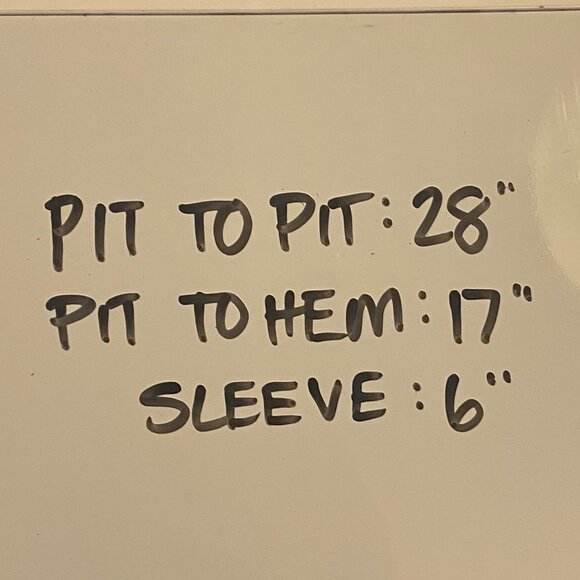 PIT TO PIT: 28"
PIT TO HEM: 17"
SLEEVE: 6"